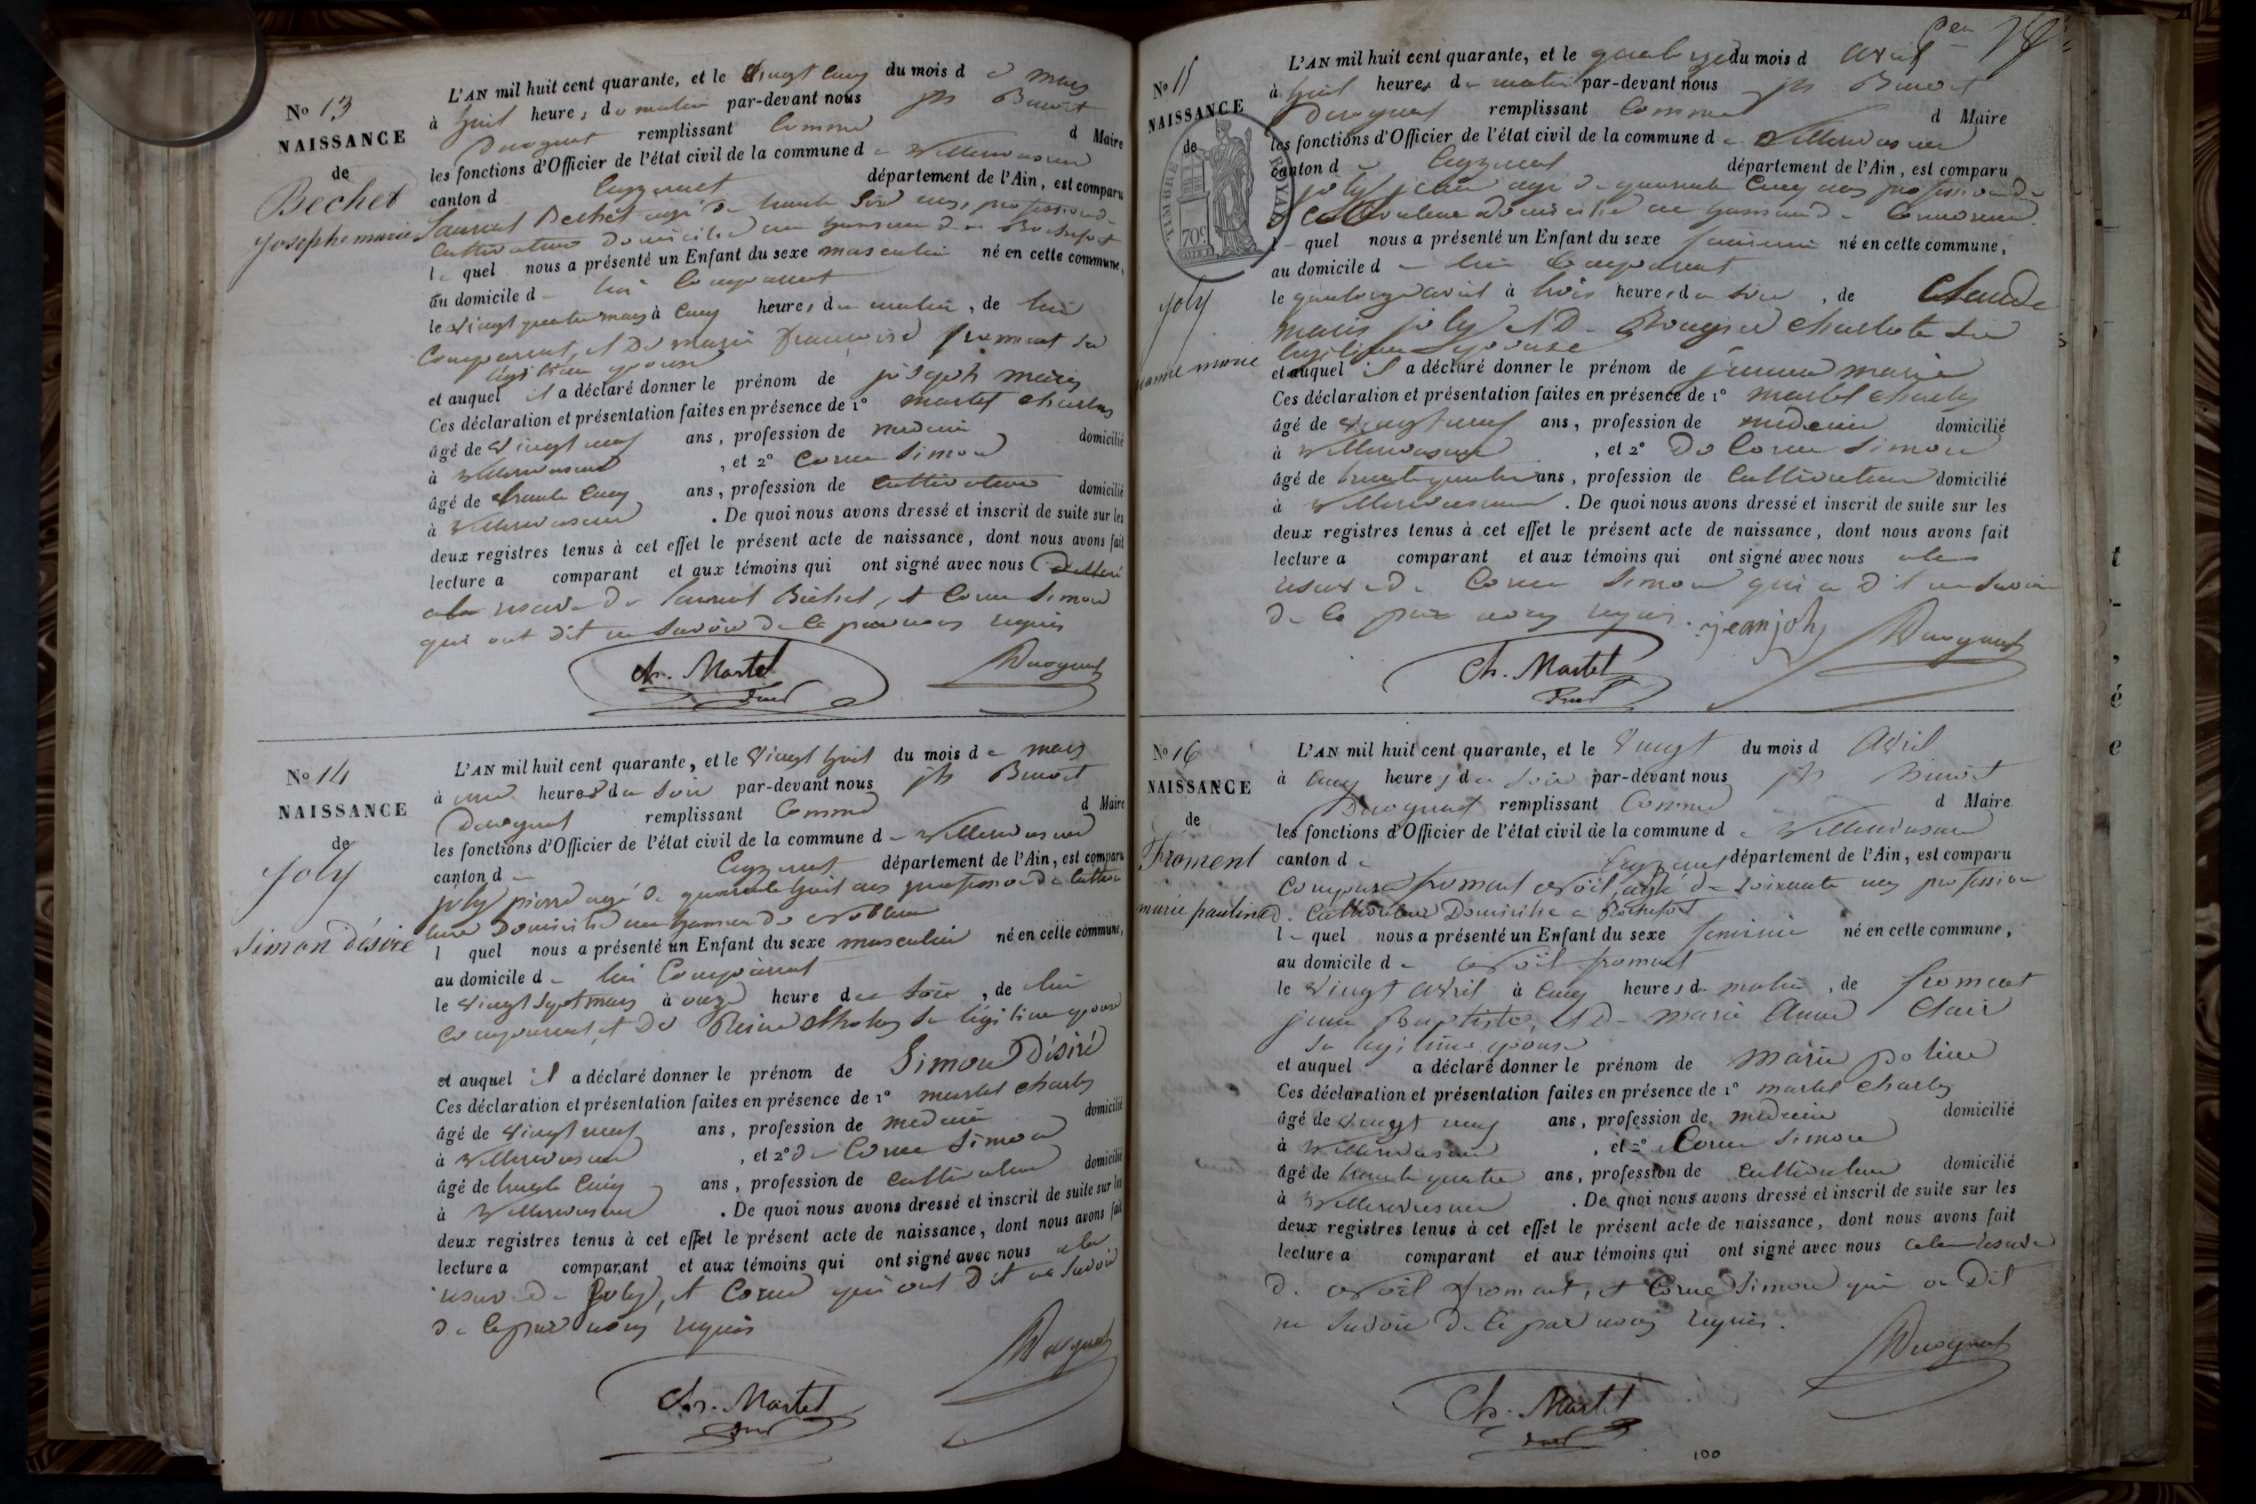 No 13
NAISSANCE
de
Bechet
Josephe marie
L'AN mil huit cent quarante, et le vingt cinq du mois de mars
à huit heures du matin par-devant nous jh Benoit
Ducognat remplissant comme d Maire
les fonctions d'Officier de l'état civil de la commune de Villereversure
canton d Ceyzeriat département de l'Ain, est comparu
Laurent Bechet agé de trente six ans, profession de
Cultivateur domicilié au hameau de Rochefort
le quel nous a présenté un Enfant du sexe masculin né en cette commune,
au domicile de lui Comparant
le vingt quatre mars à cinq heures du matin, de lui
Comparant, et de marie françoise froment sa
légitime épouse
et auquel il a déclaré donner le prénom de joseph marie
Ces déclaration et présentation faites en présence de 1° martel charles
âgé de vingt neuf ans, profession de medecin domicilié
à Villereversure, et 2° Corne Simon
âgé de trente cinq ans, profession de Cultivateur domicilié
à Villereversure. De quoi nous avons dressé et inscrit de suite sur les
deux registres tenus à cet effet le présent acte de naissance, dont nous avons fait
lecture a comparant et aux témoins qui ont signé avec nous
a la reserve de laurent Bechet, et Corne Simon
qui ont dit ne savoir de ce par nous requis
Ch. Martel
Ducognat
No 14
NAISSANCE
de
Joly
Simon désiré
L'AN mil huit cent quarante, et le vingt huit du mois de mars
à une heure du soir par-devant nous jh Benoit
Ducognat remplissant Comme d Maire
les fonctions d'Officier de l'état civil de la commune de Villereversure
canton de Ceyzeriat département de l'Ain, est comparu
joly pierre agé de quarante huit ans profession de cultiva
teur domicilié au hameau de noblens
l quel nous a présenté un Enfant du sexe masculin né en cette commune,
au domicile de lui Comparant
le vingt sept mars à onze heure du soir, de lui
Comparant, et de Reine sa légitime épouse
et auquel il a déclaré donner le prénom de Simon Désiré
Ces déclaration et présentation faites en présence de 1° martel charles
âgé de vingt neuf ans, profession de medecin domicilié
à Villereversure, et 2° de Corne Simon
âgé de trente cinq ans, profession de cultivateur domicilié
à Villereversure. De quoi nous avons dressé et inscrit de suite sur les
deux registres tenus à cet effet le présent acte de naissance, dont nous avons fait
lecture a comparant et aux témoins qui ont signé avec nous a la
reserve de Joly, et Corne qui ont dit ne savoir
de ce par nous requis
Ch. Martel
Ducognat
No 15
NAISSANCE
de
TIMBRE ROYAL
70c
joly
jeanne marie
L'AN mil huit cent quarante, et le quatorze du mois d avril
à huit heures du matin par-devant nous jh Benoit
Ducognat remplissant Comme d Maire
les fonctions d'Officier de l'état civil de la commune de Villereversure
canton de Ceyzeriat département de l'Ain, est comparu
joly jean agé de quarante cinq ans profession de
Cultivateur domicilié au hameau de
le quel nous a présenté un Enfant du sexe feminin né en cette commune,
au domicile de lui Comparant
le quatorze avril à trois heures du soir, de Claude
marie joly et de charlotte sa
légitime épouse
et auquel il a déclaré donner le prénom de jeanne marie
Ces déclaration et présentation faites en présence de 1° martel charles
âgé de vingt neuf ans, profession de medecin domicilié
à Villereversure, et 2° De Corne Simon
âgé de trente quatre ans, profession de Cultivateur domicilié
à Villereversure. De quoi nous avons dressé et inscrit de suite sur les
deux registres tenus à cet effet le présent acte de naissance, dont nous avons fait
lecture a comparant et aux témoins qui ont signé avec nous a la
reserve de Corne Simon qui a dit ne savoir
de ce par nous requis. jean joly
Ch. Martel
Ducognat
No 16
NAISSANCE
de
Froment
marie pauline
L'AN mil huit cent quarante, et le vingt du mois d Avril
à cinq heures du soir par-devant nous jh Benoit
Ducognat remplissant Comme d Maire
les fonctions d'Officier de l'état civil de la commune de Villereversure
canton de Ceyzeriat département de l'Ain, est comparu
froment agé de soixante ans profession
de Cultivateur Domicilié a Rochefort
le quel nous a présenté un Enfant du sexe feminin né en cette commune,
au domicile de froment
le vingt avril à cinq heures du matin, de froment
jean Baptiste, et de marie Anne Clair
sa légitime épouse
et auquel a déclaré donner le prénom de marie poline
Ces déclaration et présentation faites en présence de 1° martel charles
âgé de vingt neuf ans, profession de medecin domicilié
à Villereversure, et 2° Corne Simon
âgé de trente quatre ans, profession de cultivateur domicilié
à Villereversure. De quoi nous avons dressé et inscrit de suite sur les
deux registres tenus à cet effet le présent acte de naissance, dont nous avons fait
lecture a comparant et aux témoins qui ont signé avec nous a la reserve
de froment, et Corne Simon qui on Dit
ne savoir de ce par nous requis.
Ch. Martel
Ducognat
100